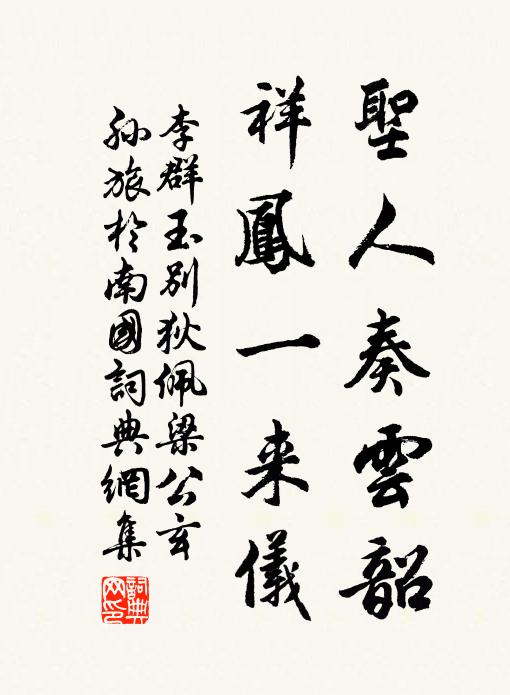 聖人奏雲韶
祥鳳一来儀
李群玉別狄佩梁公玄
孫旅於南國詞典網集
詞典网印